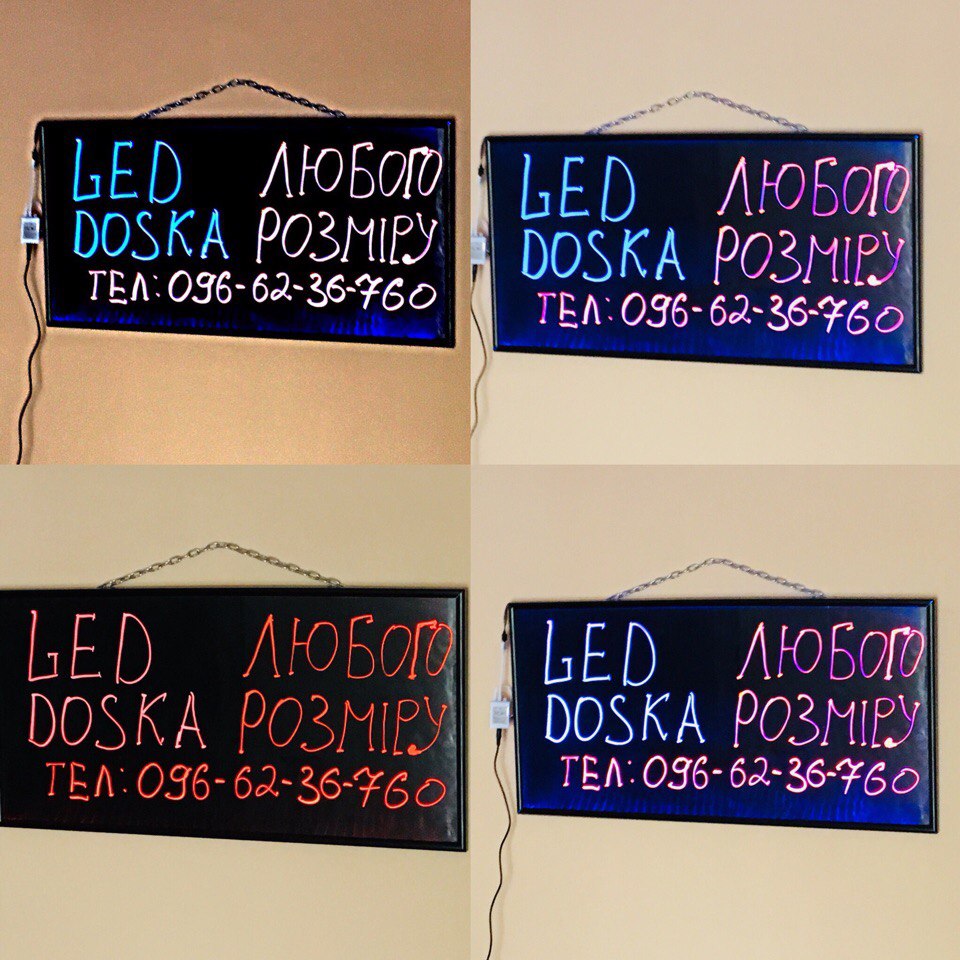 LED ЛЮБОГО
DOSKA РОЗМІРУ
ТЕЛ: 096-62-36-760
LED ЛЮБОГО
DOSKA РОЗМІРУ
ТЕЛ: 096-62-36-760
LED ЛЮБОГО
DOSKA РОЗМІРУ
ТЕЛ: 096-62-36-760
LED ЛЮБОГО
DOSKA РОЗМІРУ
ТЕЛ: 096-62-36-760